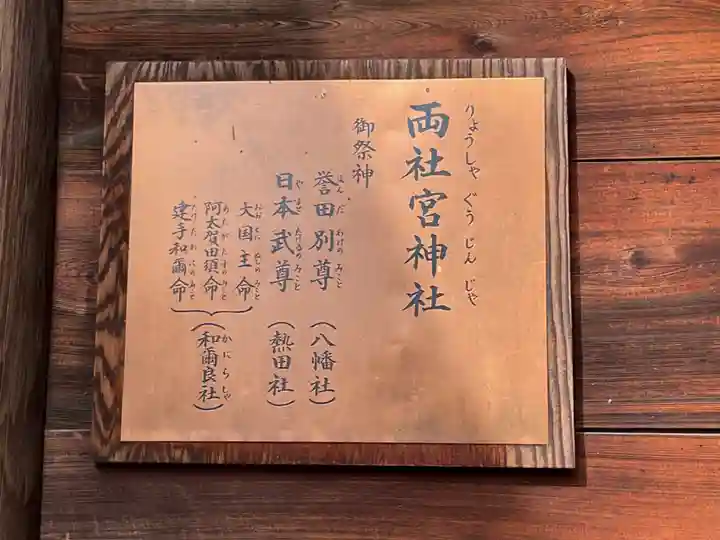 両社宮神社
りょうしゃぐうじんじゃ
御祭神
誉田別尊（八幡社）
ほんだわけのみこと
日本武尊（熱田社）
やまとたけるのみこと
大国主命
おおくにぬしのみこと
阿太賀田須命
あたかたすのみこと
建手和爾命
たけたわにのみこと
（和爾良社）
かにらしゃ